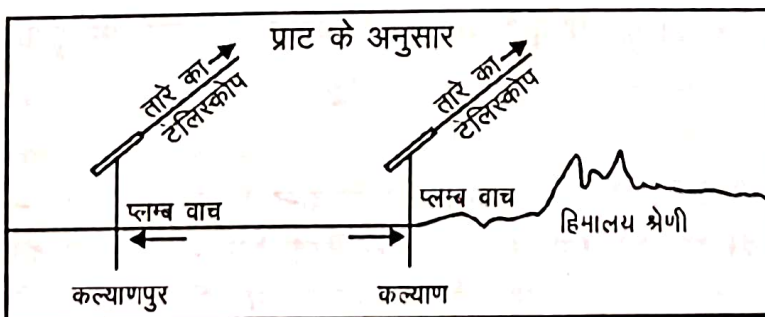 प्राट के अनुसार
तारे का
टेलिस्कोप
तारे का
टेलिस्कोप
प्लम्ब वाच
प्लम्ब वाच
हिमालय श्रेणी
कल्याणपुर
कल्याण